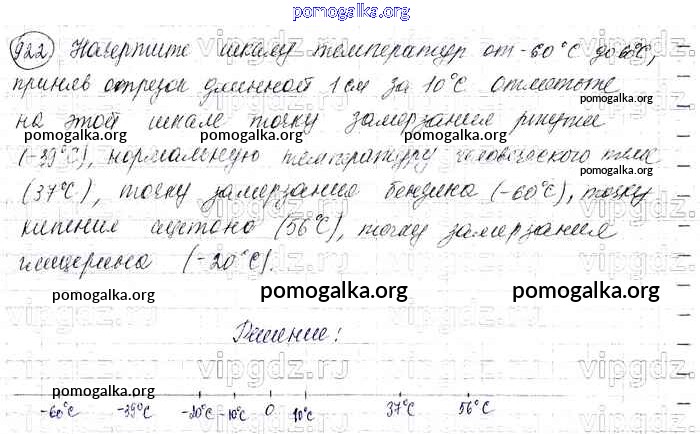 pomogalka.org
922. Начертите шкалу температур от -60°C до 60°C,
приняв отрезок длинной 1 см за 10°C Отметьте
на этой шкале точку замерзания ртути
pomogalka.org pomogalka.org pomogalka.org pomogalka.org
(-39°C), нормальную температуру человеческого тела
(37°C), точку замерзания бензина (-60°C), точку
кипения ацетона (56°C), точку замерзания
глицерина (-20°C).
pomogalka.org pomogalka.org pomogalka.org
Решение:
vipgdz.ru vipgdz.ru vipgdz.ru
pomogalka.org
-60°C -39°C -20°C -10°C 0 10°C 37°C 56°C